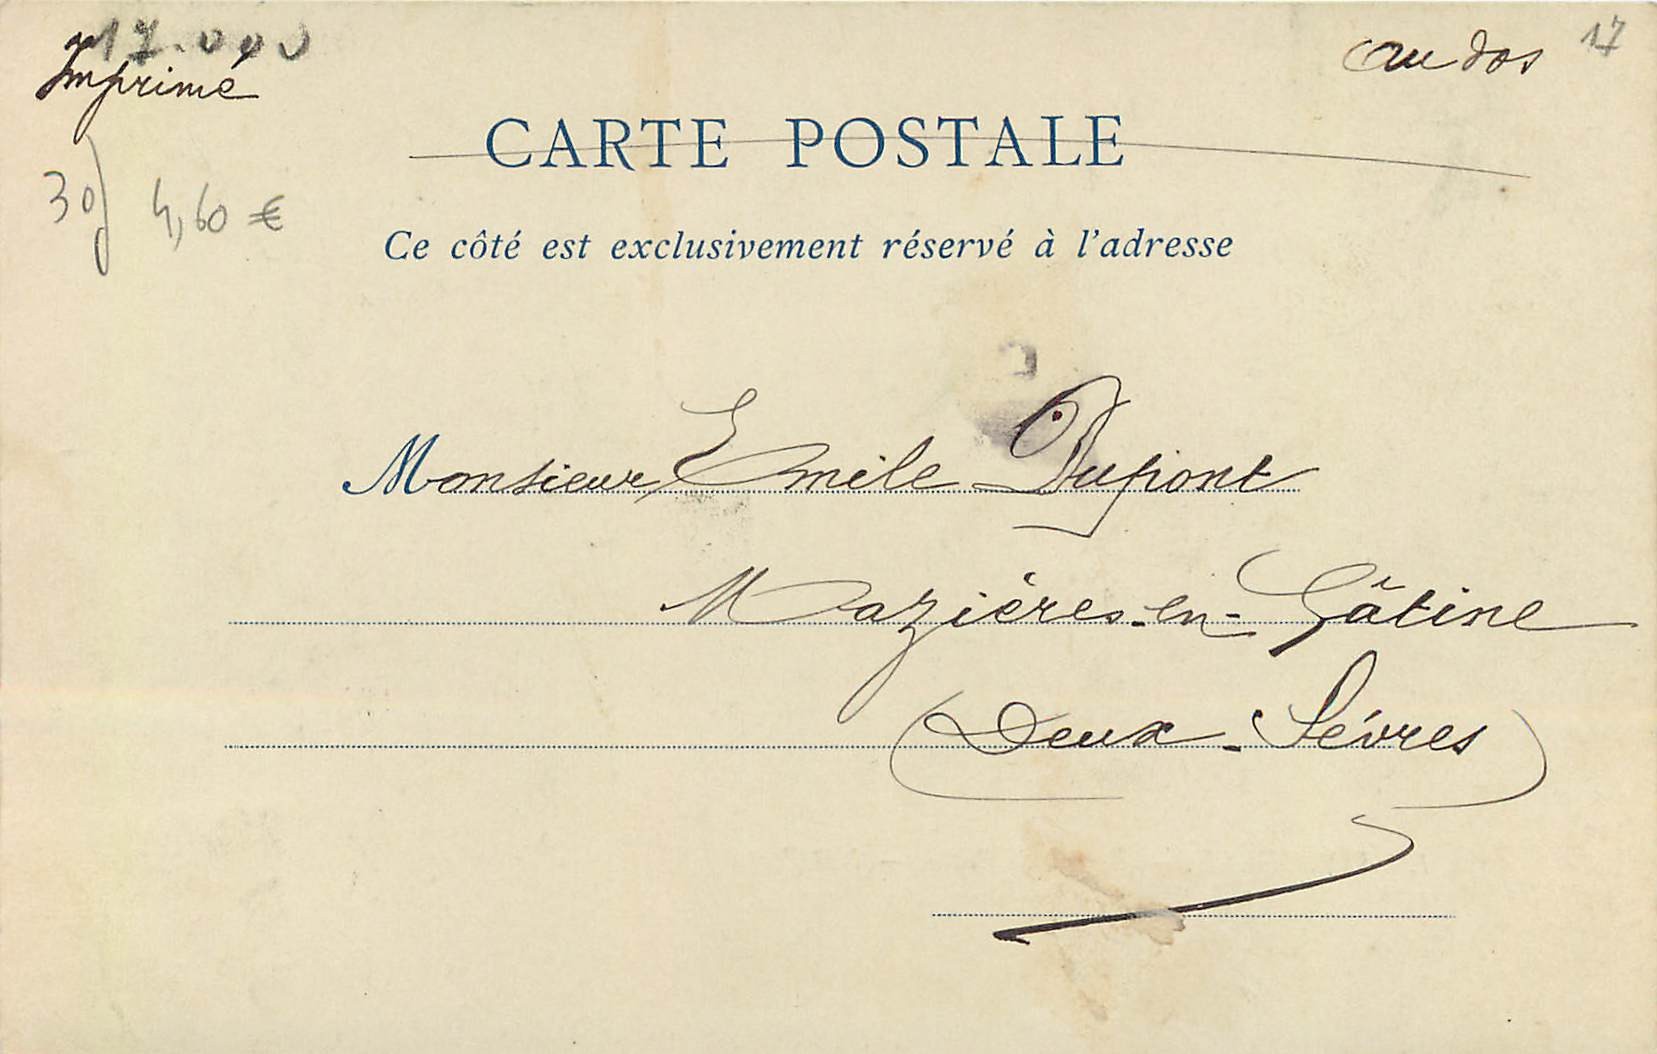 17.000
17
Imprimé
au dos
CARTE POSTALE
30
4,60 €
Ce côté est exclusivement réservé à l'adresse
Monsieur Emile Dupont
Mazières-en-Gâtine
(Deux-Sèvres)